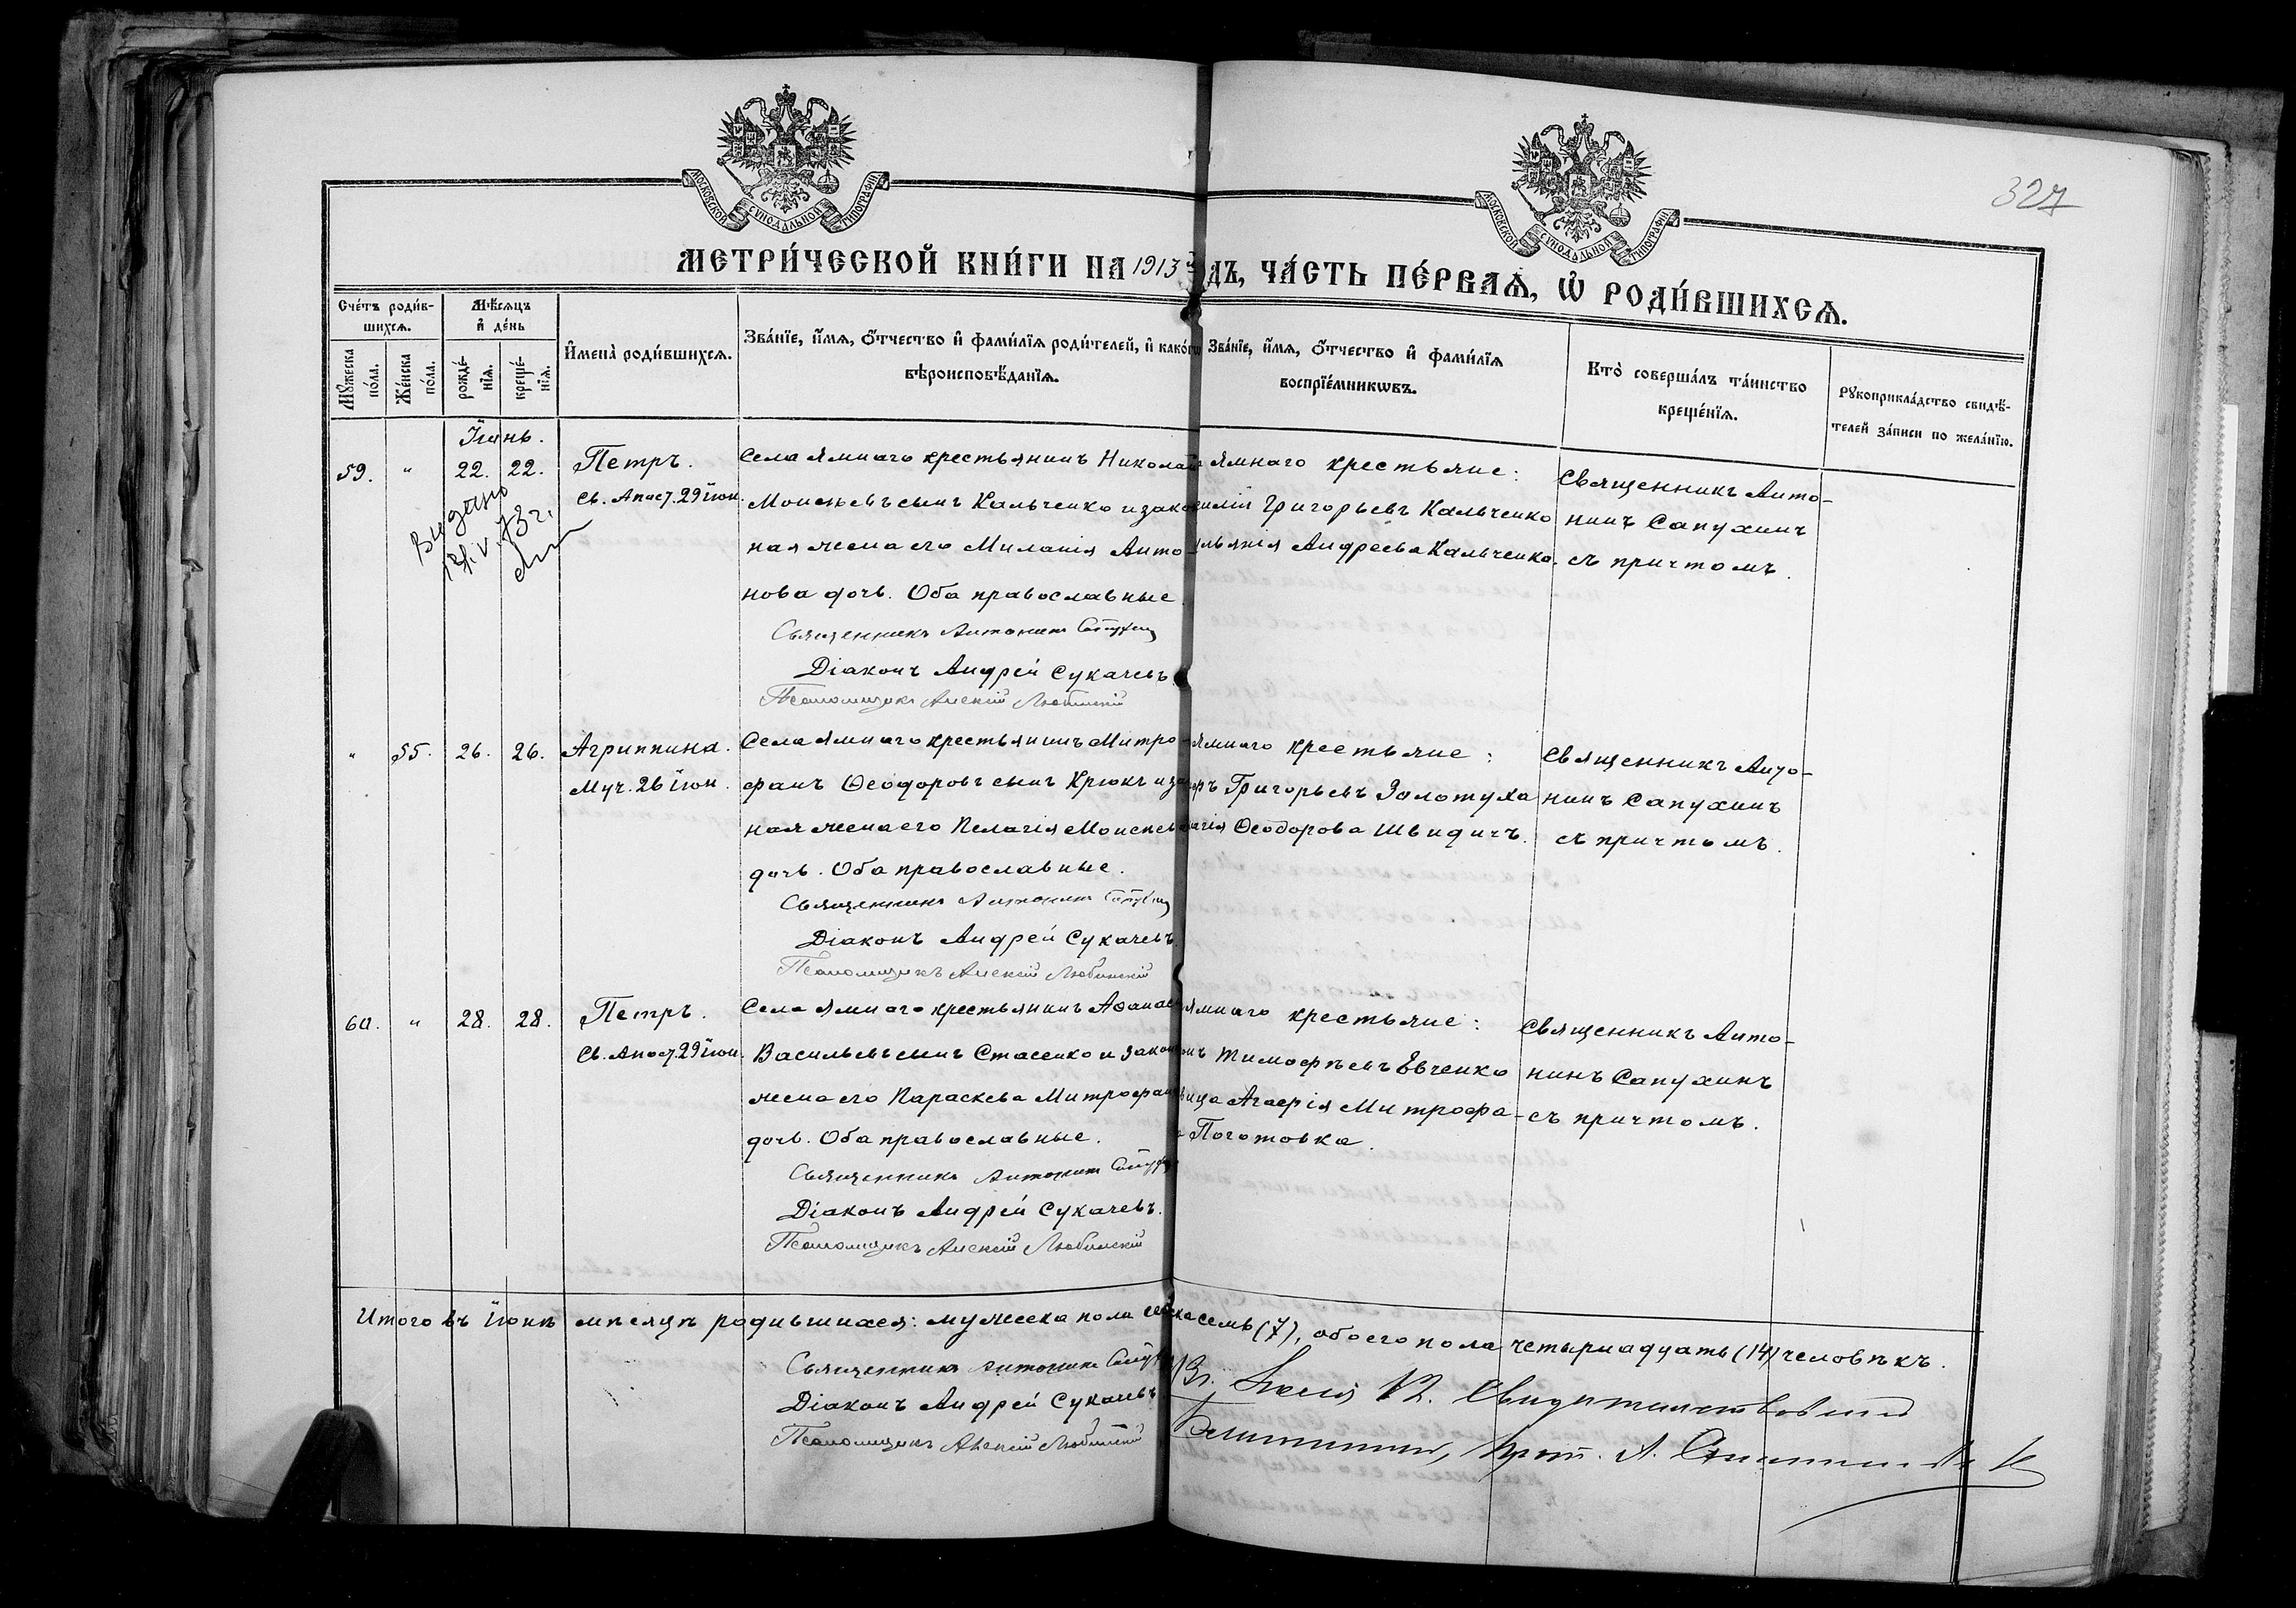 327
МОСКОВСКОЙ СѴНОДАЛЬНОЙ ТИПОГРАФІИ
МОСКОВСКОЙ СѴНОДАЛЬНОЙ ТИПОГРАФІИ
МЕТРИ́ЧЕСКОЙ КНИ́ГИ НА 1913 й ДЪ, ЧА́СТЬ ПЕ́РВАѦ, Ѡ҆ РОДИ́ВШИХСѦ.
Сче́тъ роди́в-
шихсѧ.
Мѣ́сѧцъ
и҆ де́нь
Мꙋ́жеска
по́ла.
Же́нска
по́ла.
рожде́-
нїѧ.
креще́-
нїѧ.
И҆мена̀ роди́вшихсѧ.
Зва́нїе, и҆́мѧ, ѻ҆́тчество и҆ фами́лїѧ роди́телей, и҆ како́гѡ
вѣроисповѣ́данїѧ.
Зва́нїе, и҆́мѧ, ѻ҆́тчество и҆ фами́лїѧ
воспрїе́мникѡвъ.
Кто̀ соверша́лъ та́инство
креще́нїѧ.
Рꙋкоприкла́дство свидѣ́-
телей за́писи по жела́нїю.
Іюнь.
59. " 22. 22. Петръ.
Св. Апост. 29 іюн.
Выдано
Села Ямнаго крестьянинъ Николай
Моисеевъ сынъ Кальченко и закон
ная жена его Миланія Анто-
нова дочь. Оба православные.
Священникъ Антонинъ Сапухин
Діаконъ Андрей Сукачевъ.
Псаломщикъ Алексій Любинскій
Ямнаго крестьяне:
илій Григорьевъ Кальченко
Андреева Кальченко.
Священникъ Анто-
нинъ Сапухинъ
съ причтомъ.
" 55. 26. 26. Агриппина.
Муч. 26 іюн.
Села Ямнаго крестьянинъ Митро-
фанъ Ѳеодоровъ сынъ Крюкъ и за
ная жена его Пелагія Моисеев
дочь. Оба православные.
Священникъ Антонинъ Сапухин
Діаконъ Андрей Сукачевъ.
Псаломщикъ Алексій Любинскій
Ямнаго крестьяне:
ръ Григорьевъ Золотуха
агія Ѳеодорова Швидичъ.
Священникъ Анто-
нинъ Сапухинъ
съ причтомъ.
60. " 28. 28. Петръ.
Св. Апост. 29 іюн.
Села Ямнаго крестьянинъ Аѳанас
Васильевъ сынъ Стасенко и закон
жена его Параскева Митрофан
дочь. Оба православные.
Священникъ Антонинъ Сапухин
Діаконъ Андрей Сукачевъ.
Псаломщикъ Алексій Любинскій
Ямнаго крестьяне:
нъ Тимофѣевъ Евченко
вица Агафія Митрофа-
Поготовка.
Священникъ Анто-
нинъ Сапухинъ
съ причтомъ.
Итого въ іюнѣ мѣсяцѣ родившихся: мужеска пола се ска семь (7), обоего пола четырнадцать (14) человѣкъ.
Священникъ Антонинъ Сапухин
Діаконъ Андрей Сукачевъ
Псаломщикъ Алексій Любинскій
Свидѣтельствовалъ
Благочинный, Прот. А.